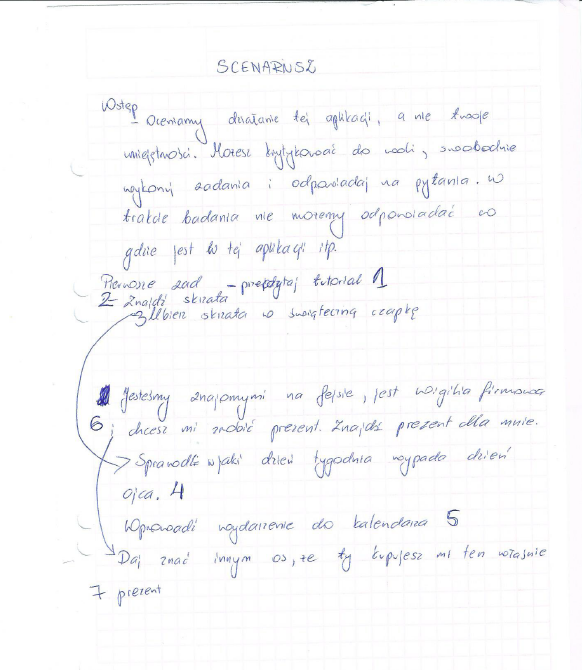 SCENARIUSZ
Wstęp
- Oceniamy działanie tej aplikacji, a nie twoje
umiejętności. Możesz krytykować do woli, swobodnie
wykonuj zadania i odpowiadaj na pytania. W
trakcie badania nie możemy odpowiadać co
gdzie jest w tej aplikacji itp.
Pierwsze zad - przeczytaj tutorial 1
2- Znajdź skrzata
3 Ubierz skrzata w świąteczną czapkę
Jesteśmy znajomymi na fejsie, jest wigilia firmowa
6 i chcesz mi zrobić prezent. Znajdź prezent dla mnie.
Sprawdź w jaki dzień tygodnia wypada dzień
ojca. 4
Wprowadź wydarzenie do kalendarza 5
Daj znać innym os, że ty kupujesz mi ten właśnie
7 prezent